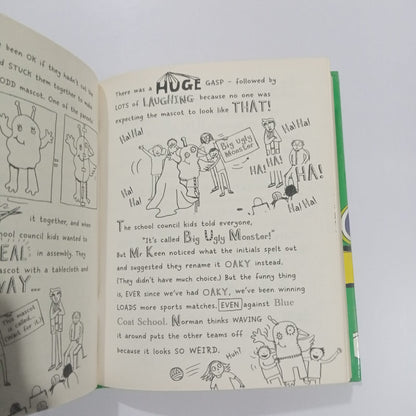 been OK if they hadn't
and STUCK them together to make
ODD mascot. One of the parents
it together, and when
school council kids wanted to
in assembly. They
mascot with a tablecloth and
WAY...
This mascot
is called...
(Wait for it!)
There was a HUGE GASP - followed by
LOTS of LAUGHING because no one was
expecting the mascot to look like THAT!
Ha! Ha!
Ha! Ha!
Big Ugly
Monster
Ha!
Ha!
HA! HA!
HA!
Ha! Ha!
The school council kids told everyone,
"It's called Big Ugly Monster!"
But Mr Keen noticed what the initials spelt out
and suggested they rename it OAKY instead.
(They didn't have much choice.) But the funny thing
is, EVER since we've had OAKY, we've been winning
LOADS more sports matches, EVEN against Blue
Coat School. Norman thinks WAVING
it around puts the other teams off
because it looks SO WEIRD.
Huh?